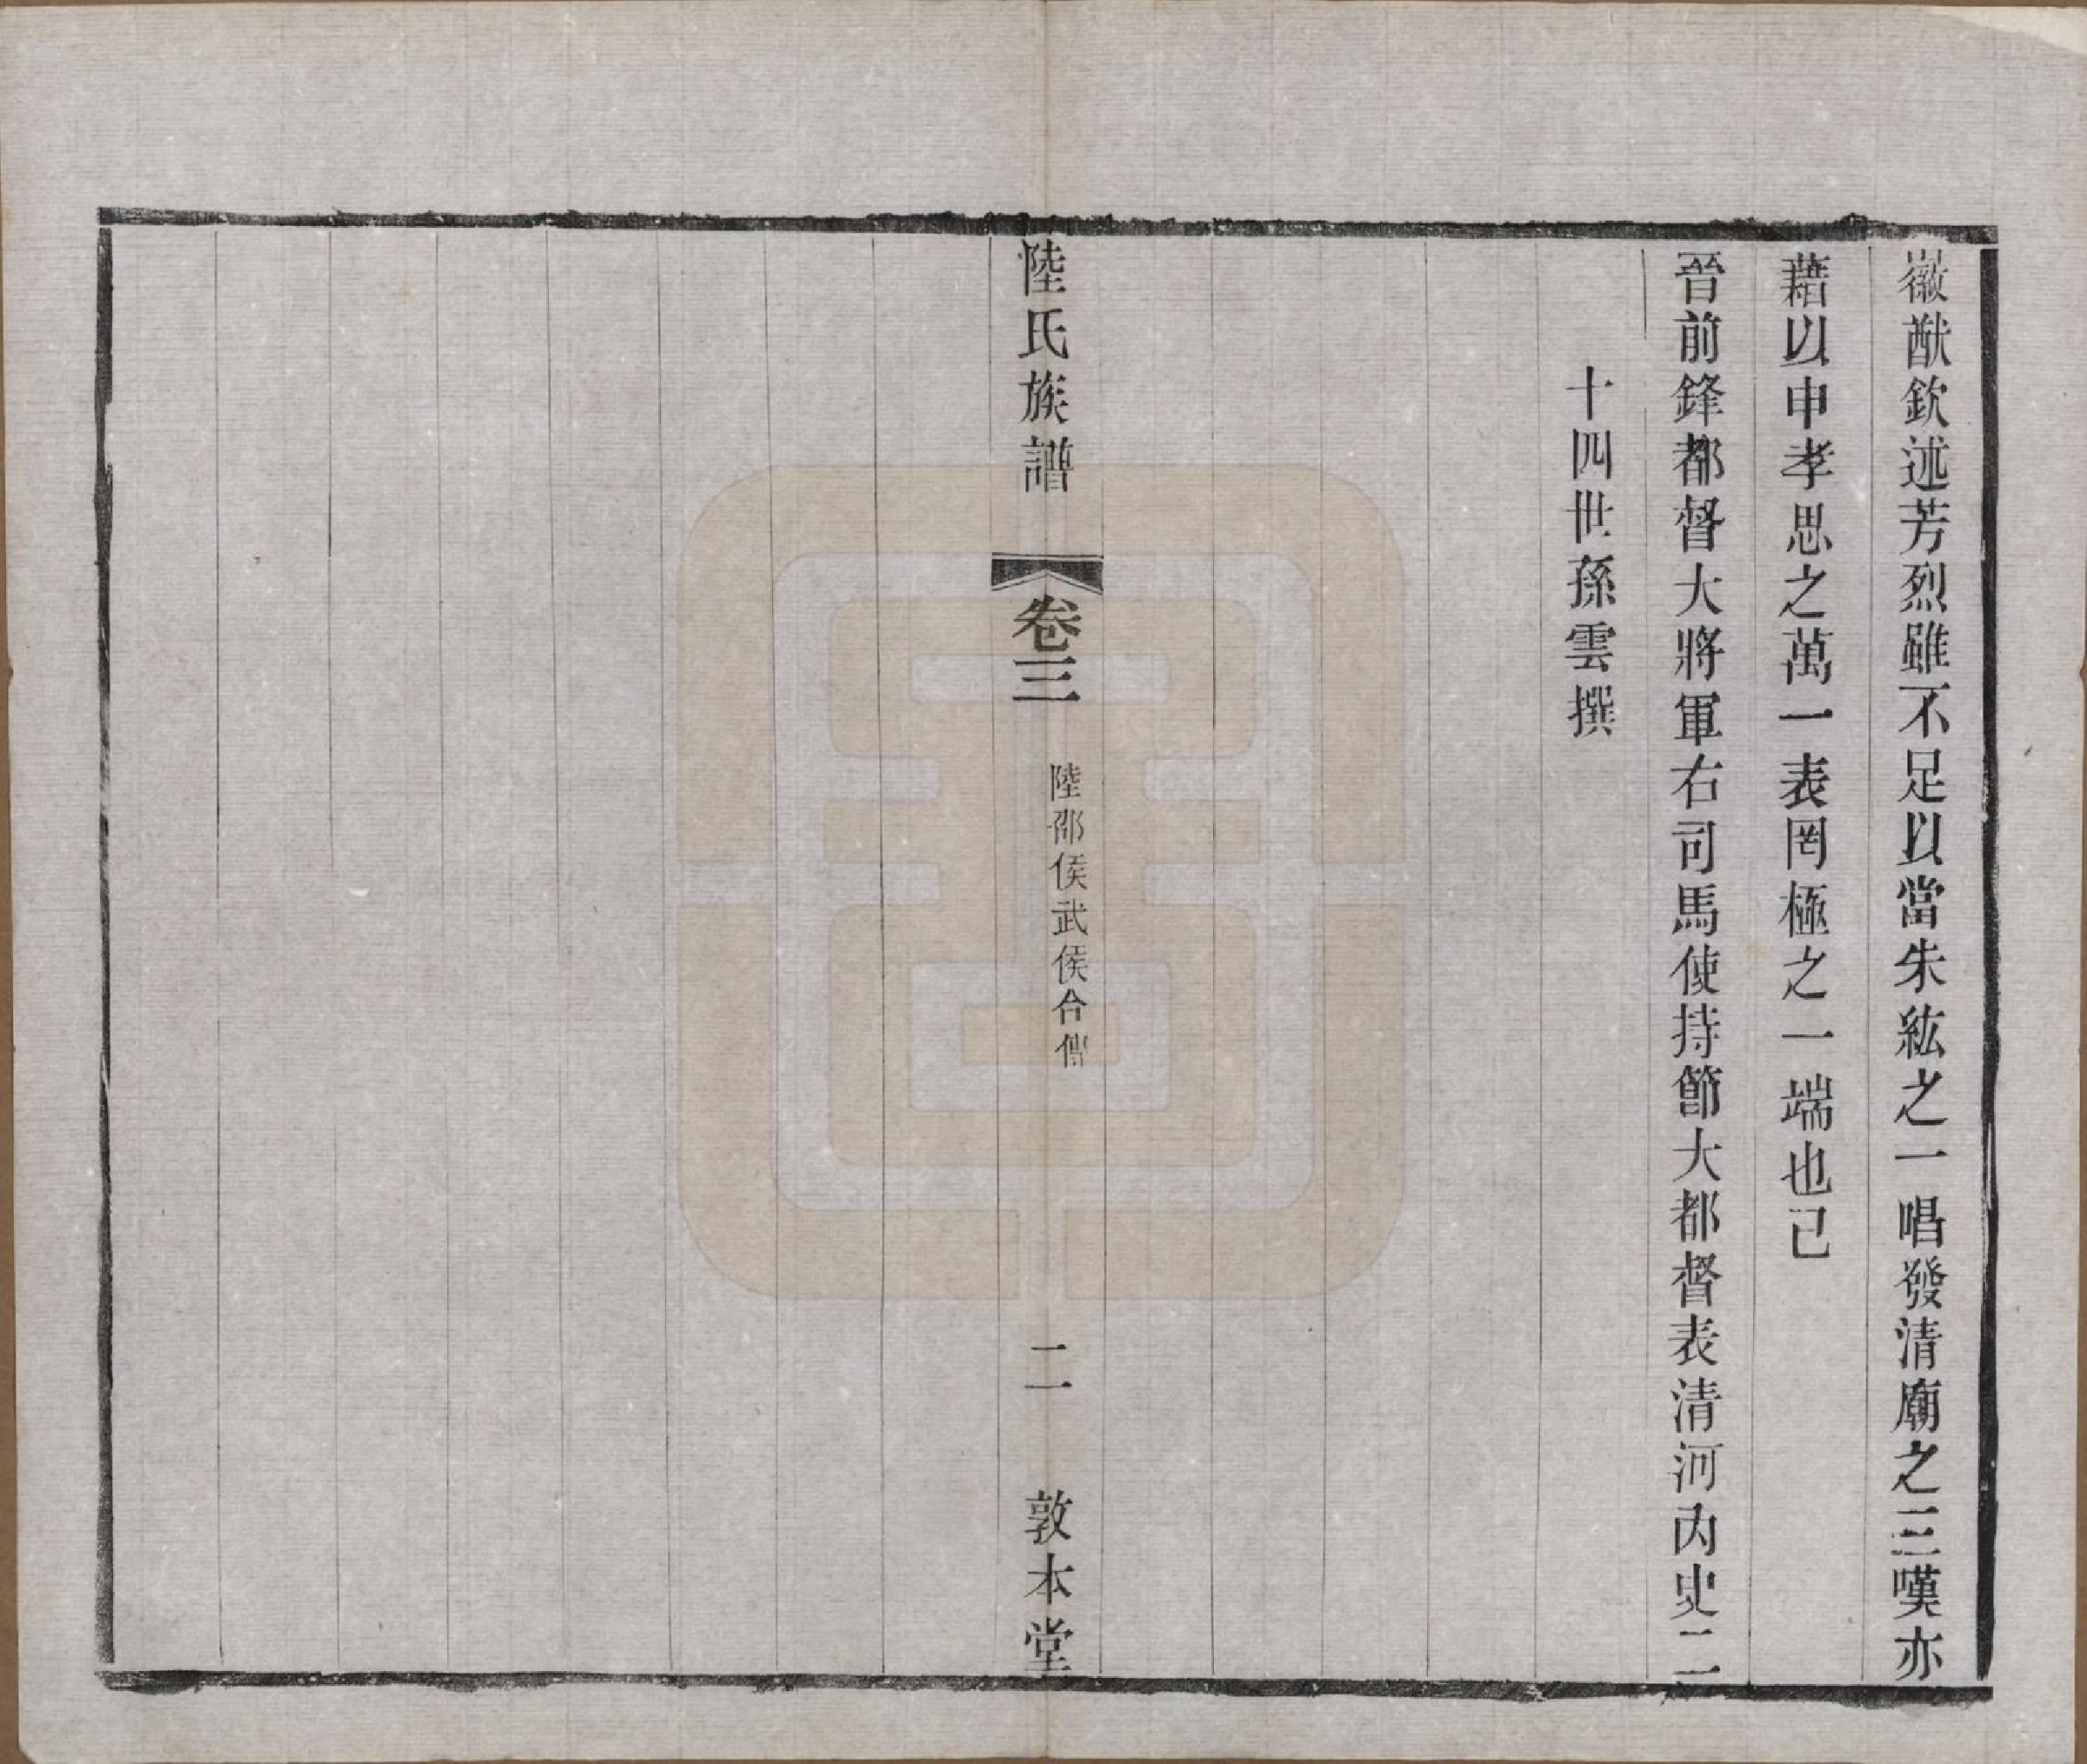 徽猷欽述芳烈雖不足以當朱紘之一唱發清廟之三嘆亦
藉以申孝思之萬一表罔極之一端也已
晉前鋒都督大將軍右司馬使持節大都督表清河內史二
十四世孫雲撰
陸氏族譜
卷三
陸邵侯武侯合傳
二
敦本堂